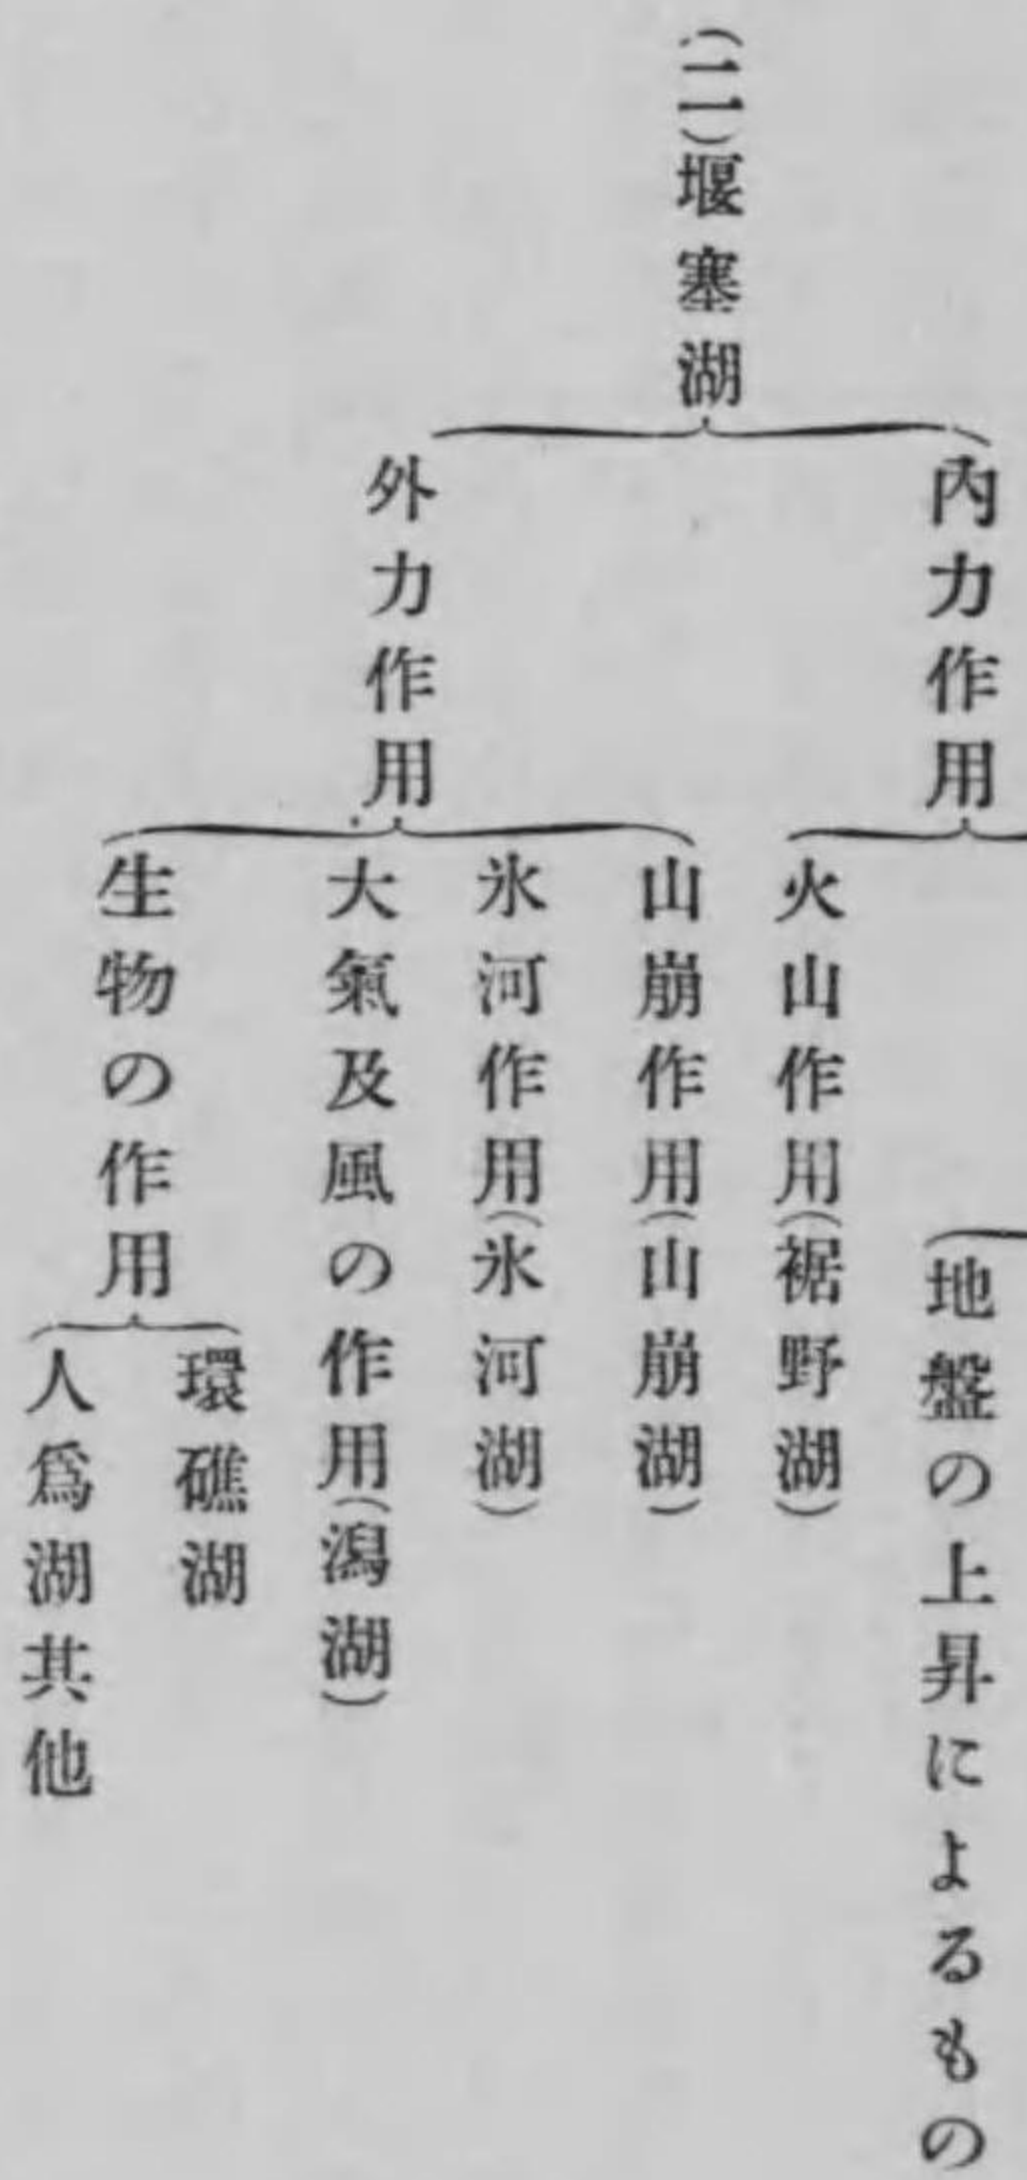 (二)堰塞湖
內力作用
地盤の上昇によるもの
火山作用(裾野湖)
外力作用
山崩作用(山崩湖)
氷河作用(氷河湖)
大氣及風の作用(潟湖)
生物の作用
環礁湖
人爲湖其他